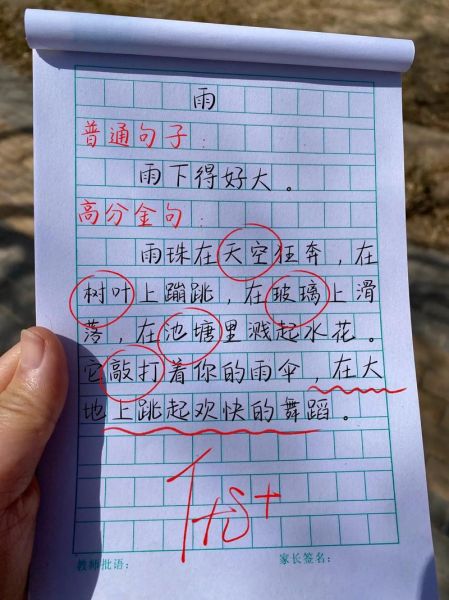 雨
普通句子：
雨下得好大。
高分金句：
雨珠在天空狂奔，在
树叶上蹦跳，在玻璃上滑
落，在池塘里溅起水花。
它敲打着你的雨伞，在大
地上跳起欢快的舞蹈。
教师批语：
家长签名：